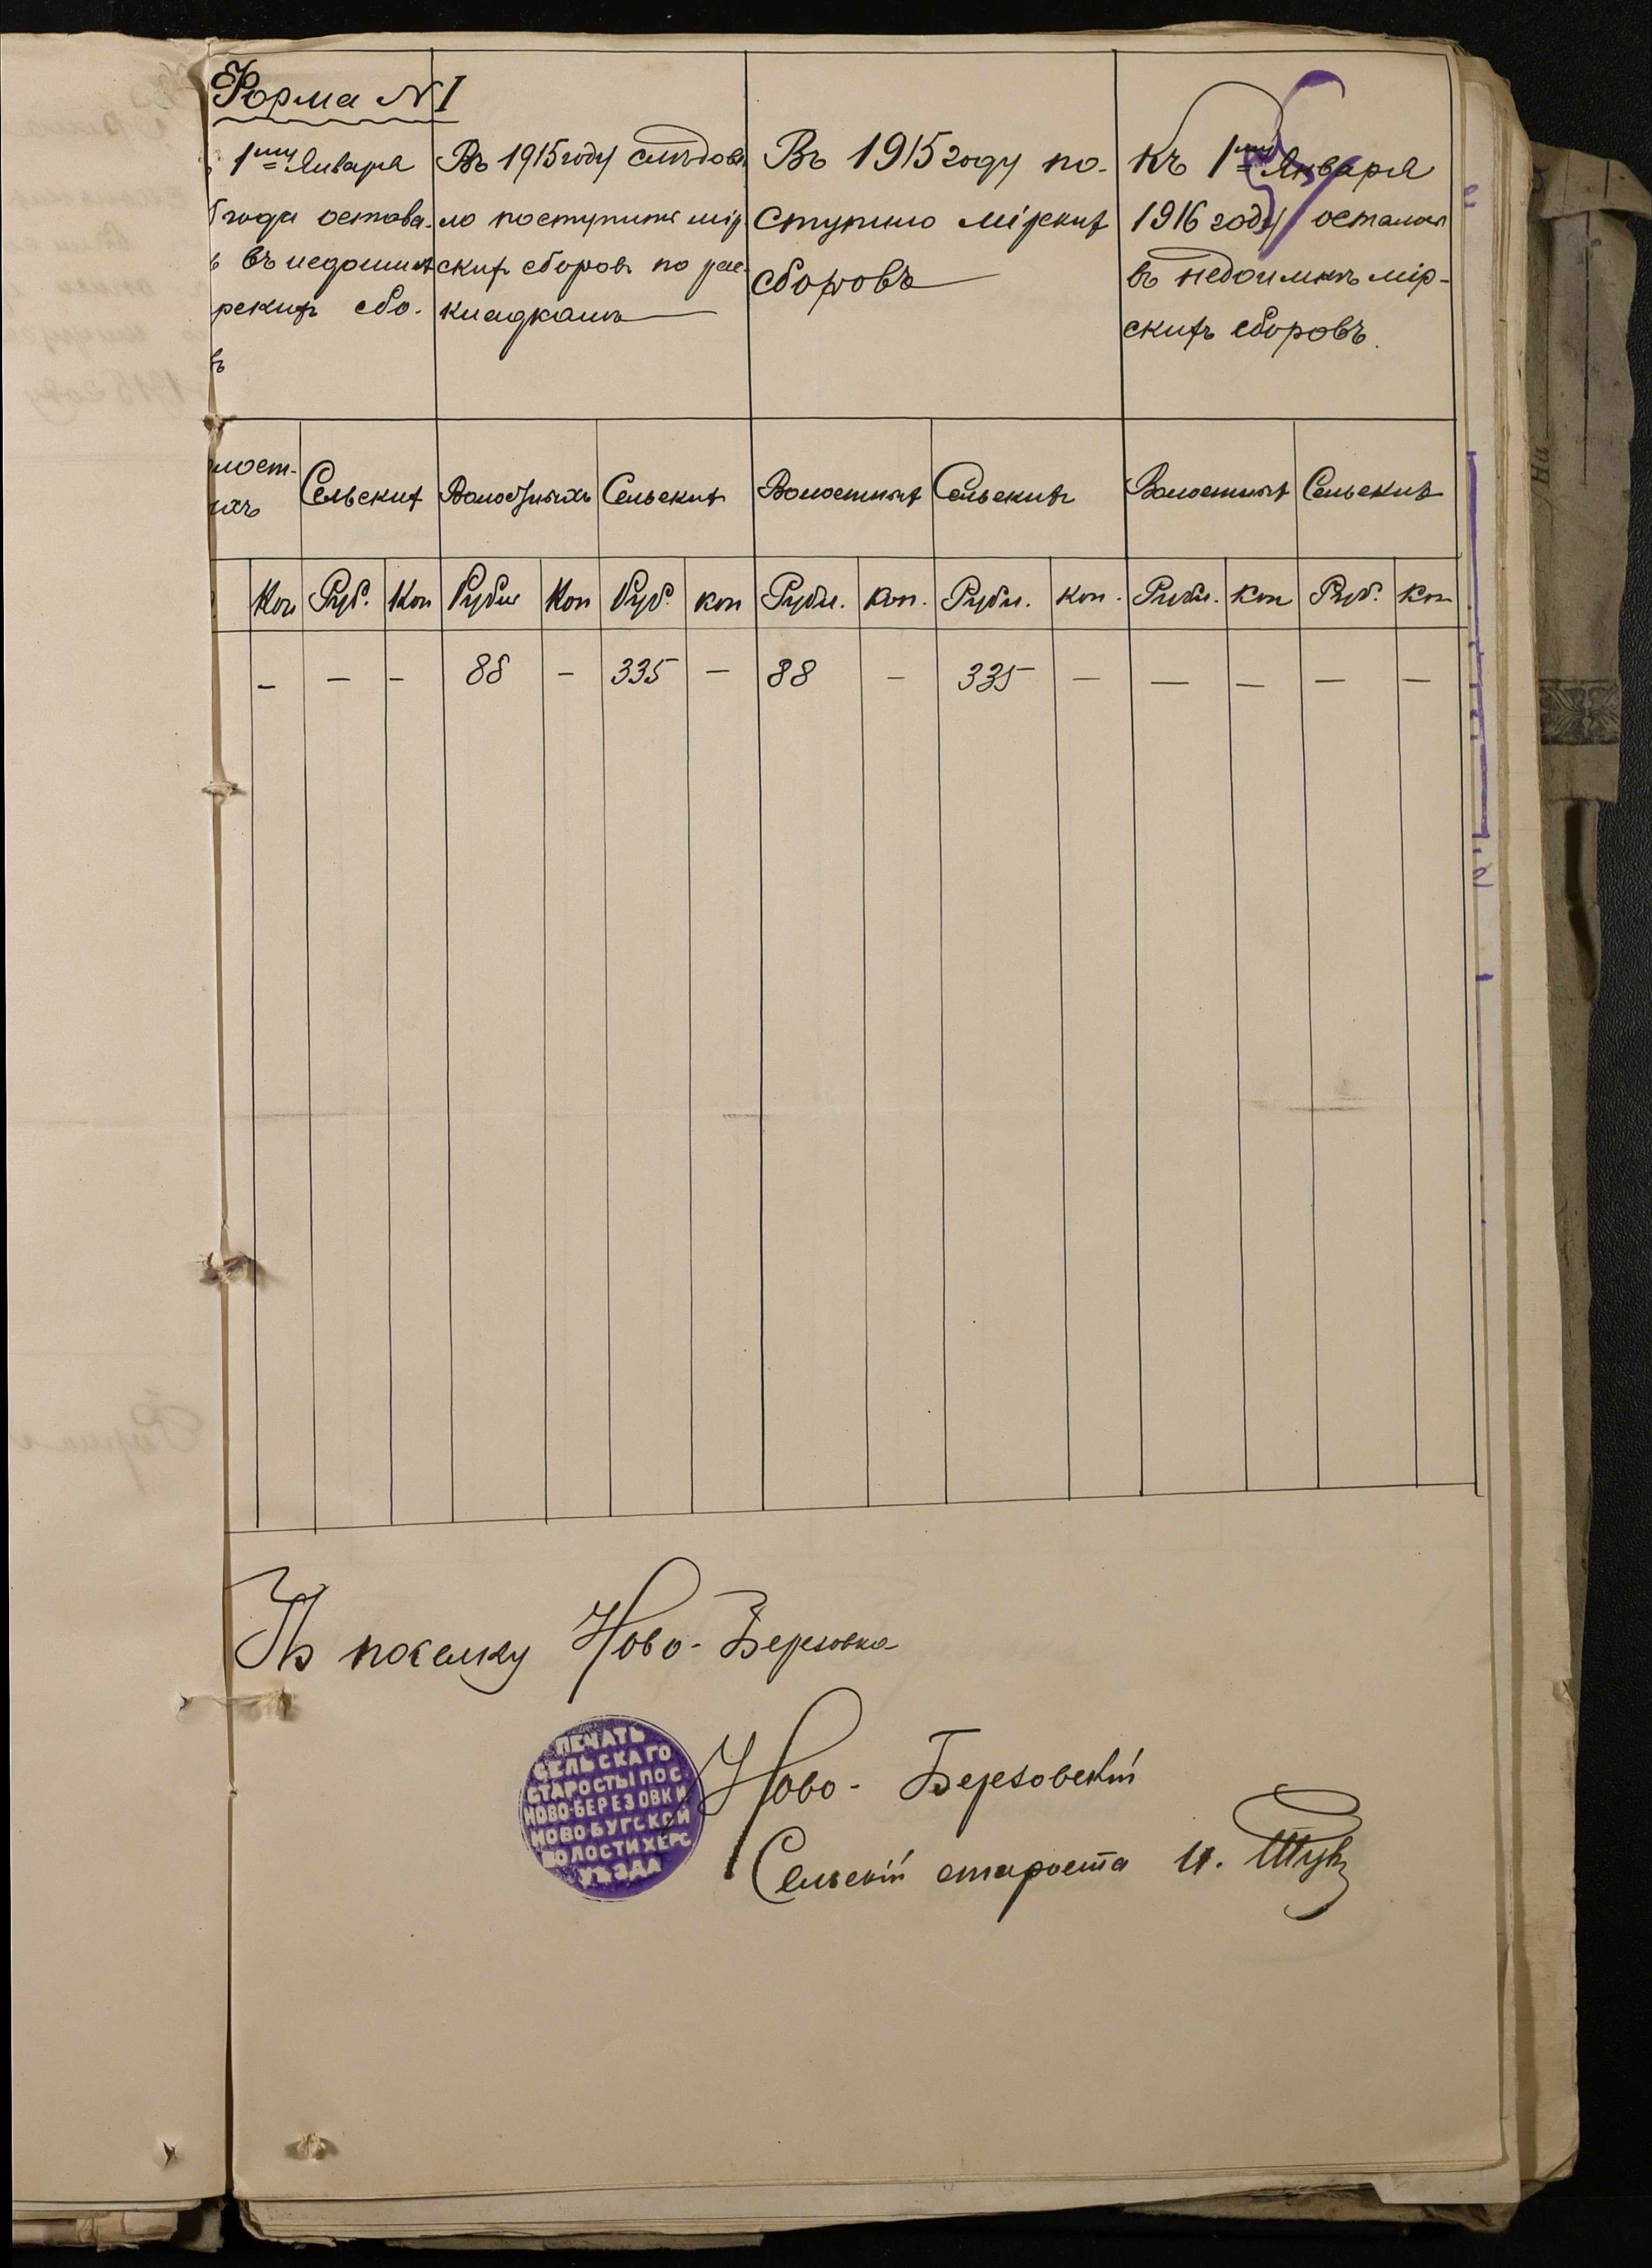 Форма № 1
1му Января
года остава-
въ недоимкѣ
рскихъ сбо-
въ
Въ 1915 году слѣдова
ло поступить мір
скихъ сборовъ по рас
кладкамъ
Въ 1915 году по-
ступило мірскихъ
сборовъ
Къ 1му Января
1916 году осталось
въ недоимкѣ мір-
скихъ сборовъ.
лост-
ихъ
Сельскихъ Волостныхъ Сельскихъ Волостныхъ Сельскихъ Волостныхъ Сельскихъ
Коп Руб. Коп Рубли Коп Руб. коп Рубл. коп. Рубл. коп. Рубл. коп Руб. коп
- - - 88 - 335 - 88 - 335 - - - - -
По поселку Ново-Березовка
ПЕЧАТЬ
СЕЛЬСКАГО
СТАРОСТЫ ПОС.
НОВО-БЕРЕЗОВКИ
НОВОБУГСКОЙ
ВОЛОСТИ ХЕРС
УѢЗДА
Ново-Березовскій
Сельскій староста И.